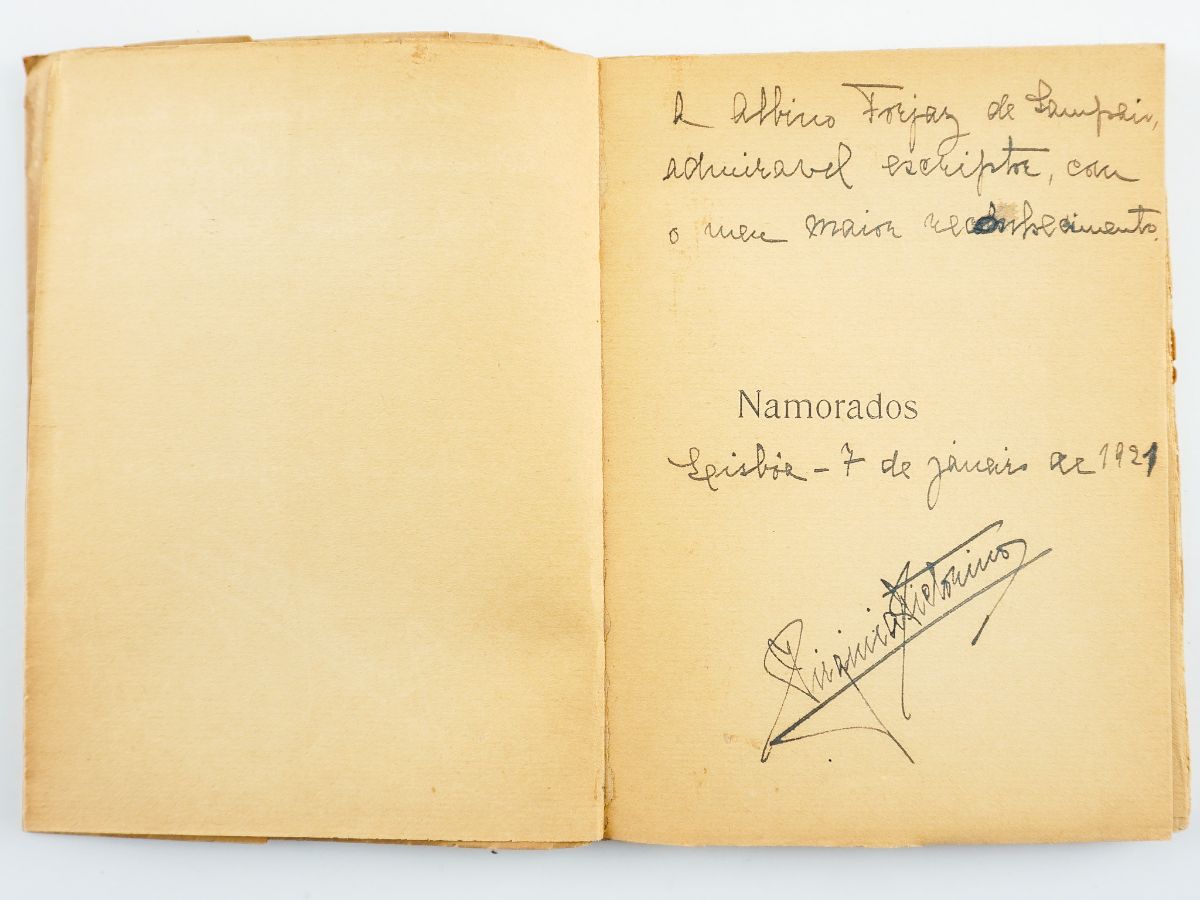 A Albino Forjaz de Sampaio,
admiravel escriptor, com
o meu maior reconhecimento.
Namorados
Lisbôa - 7 de janeiro de 1921
Virginia Victorino